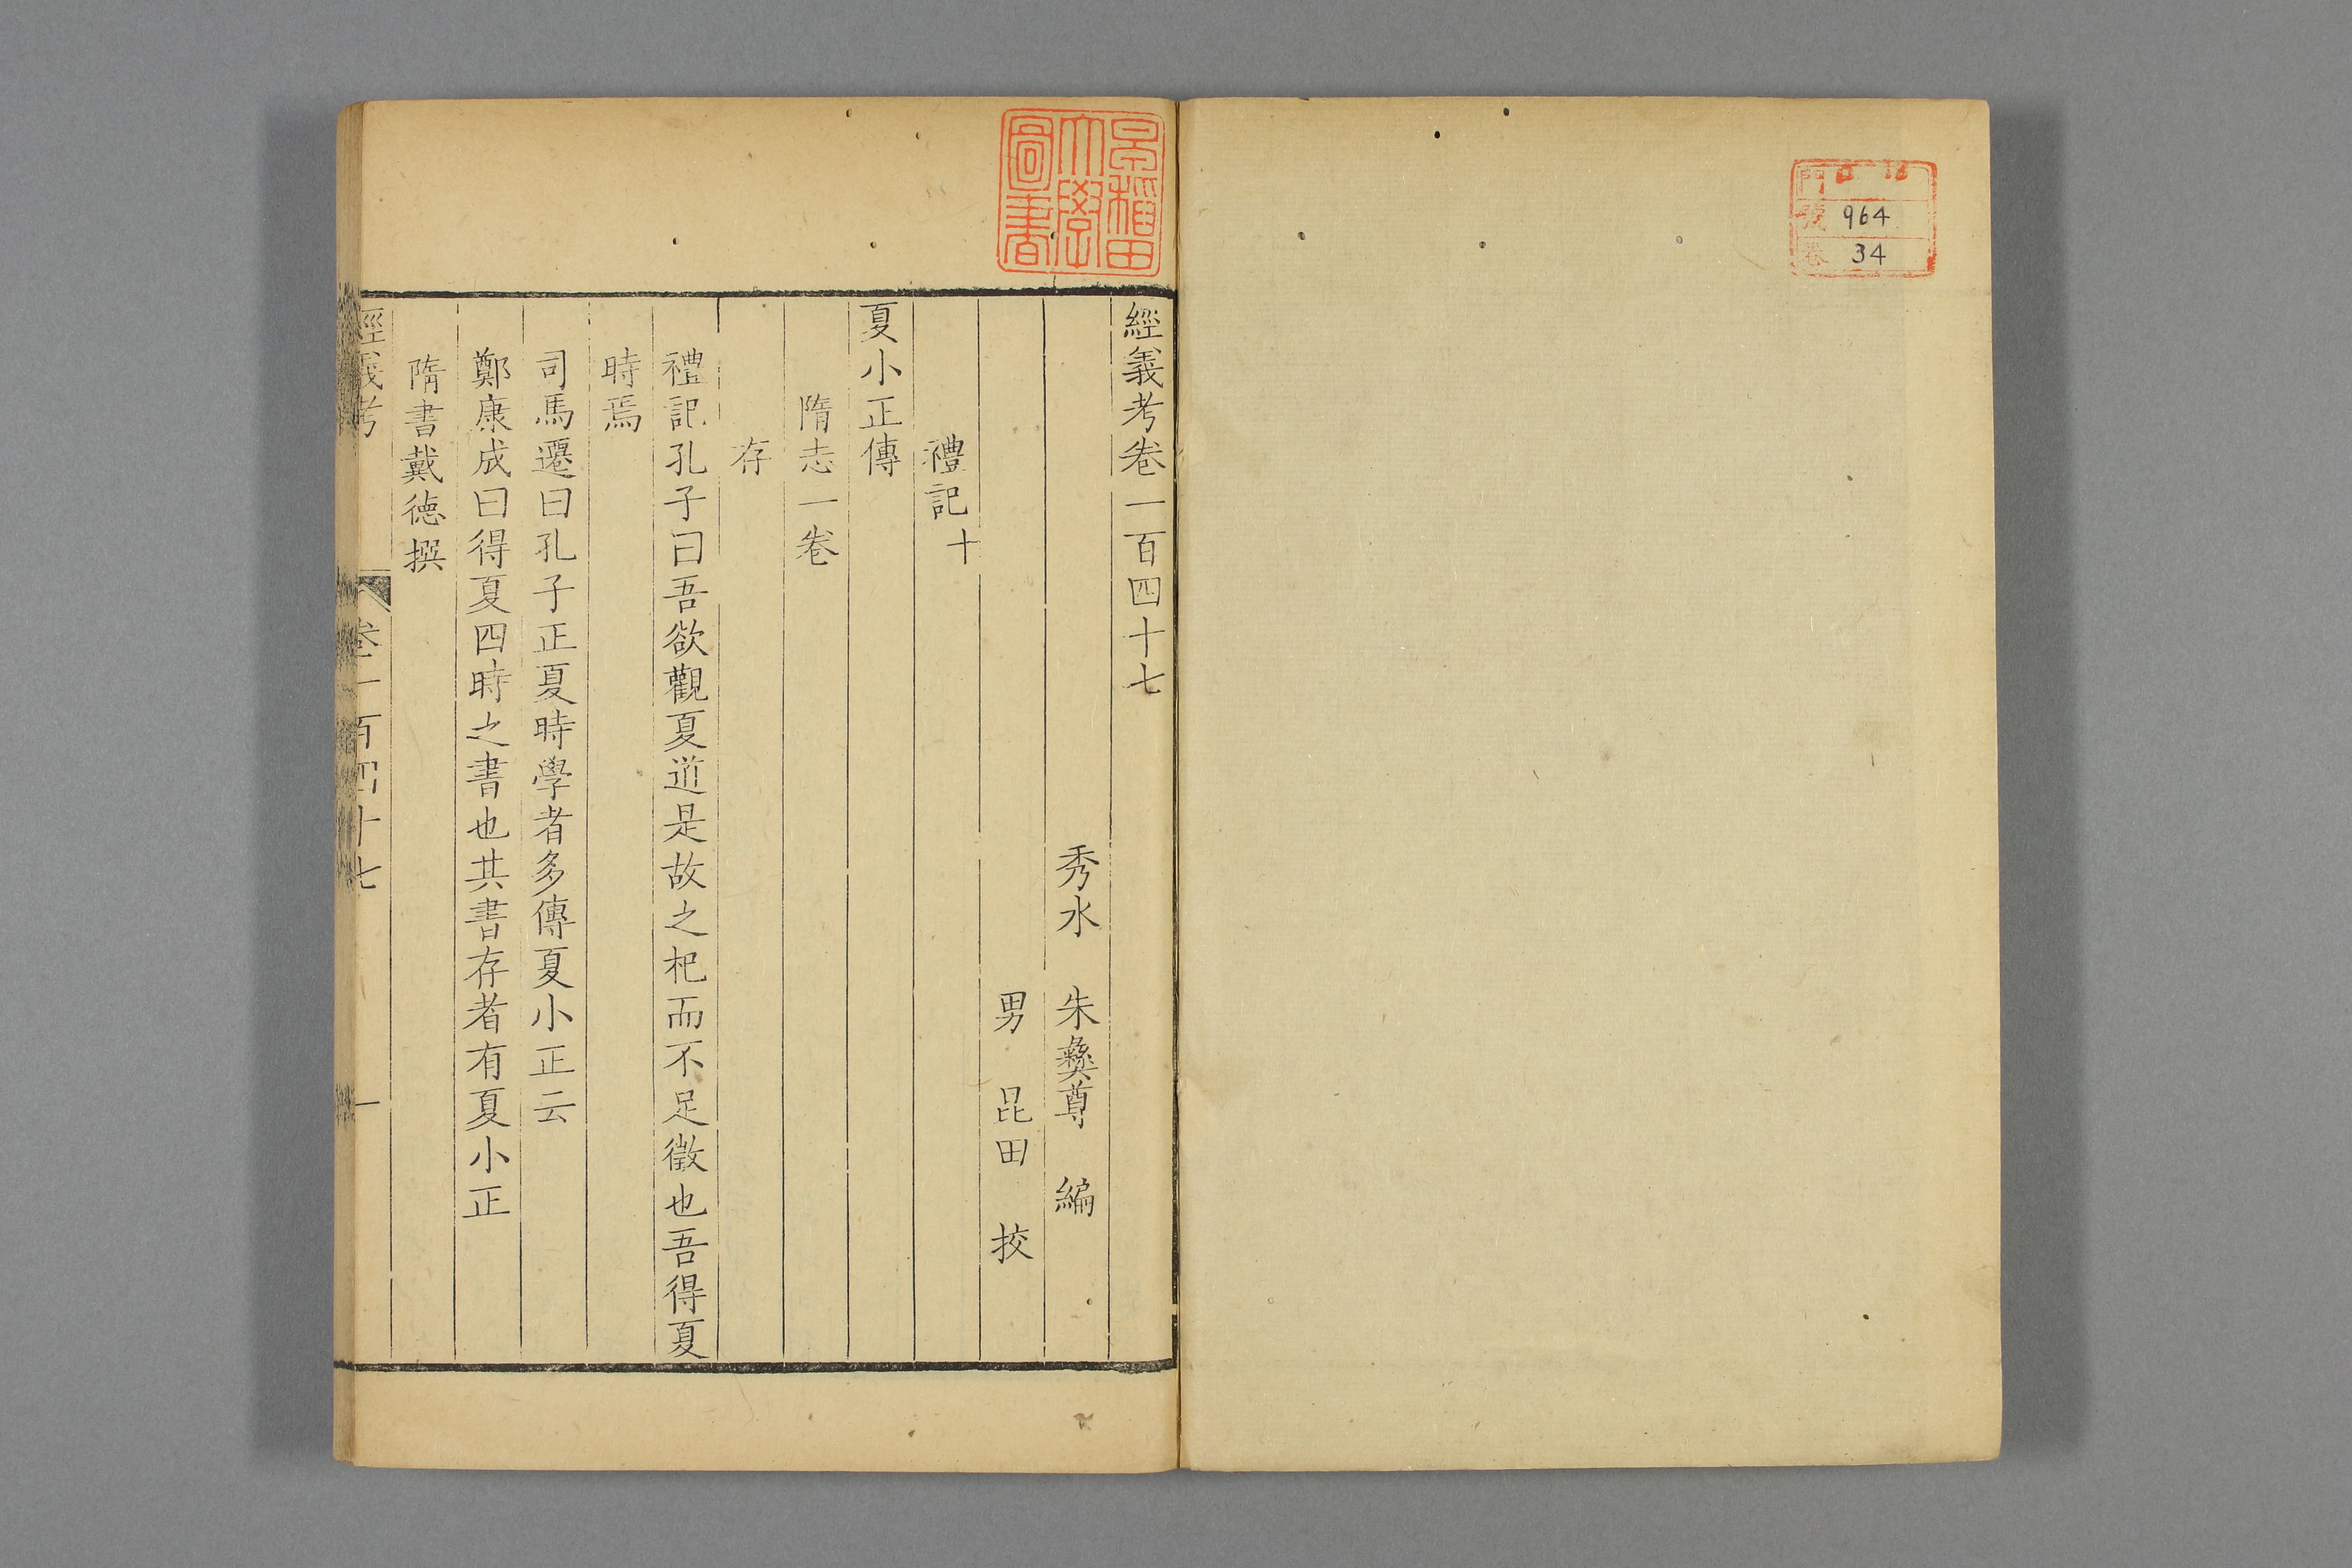 門
號 964
卷 34
早稲田大學圖書
經義考卷一百四十七
秀水 朱彝尊 編
男 昆田 挍
禮記十
夏小正傳
隋志一卷
存
禮記孔子曰吾欲觀夏道是故之杞而不足徵也吾得夏
時焉
司馬遷曰孔子正夏時學者多傳夏小正云
鄭康成曰得夏四時之書也其書存者有夏小正
隋書戴德撰
經義考 卷一百四十七 一